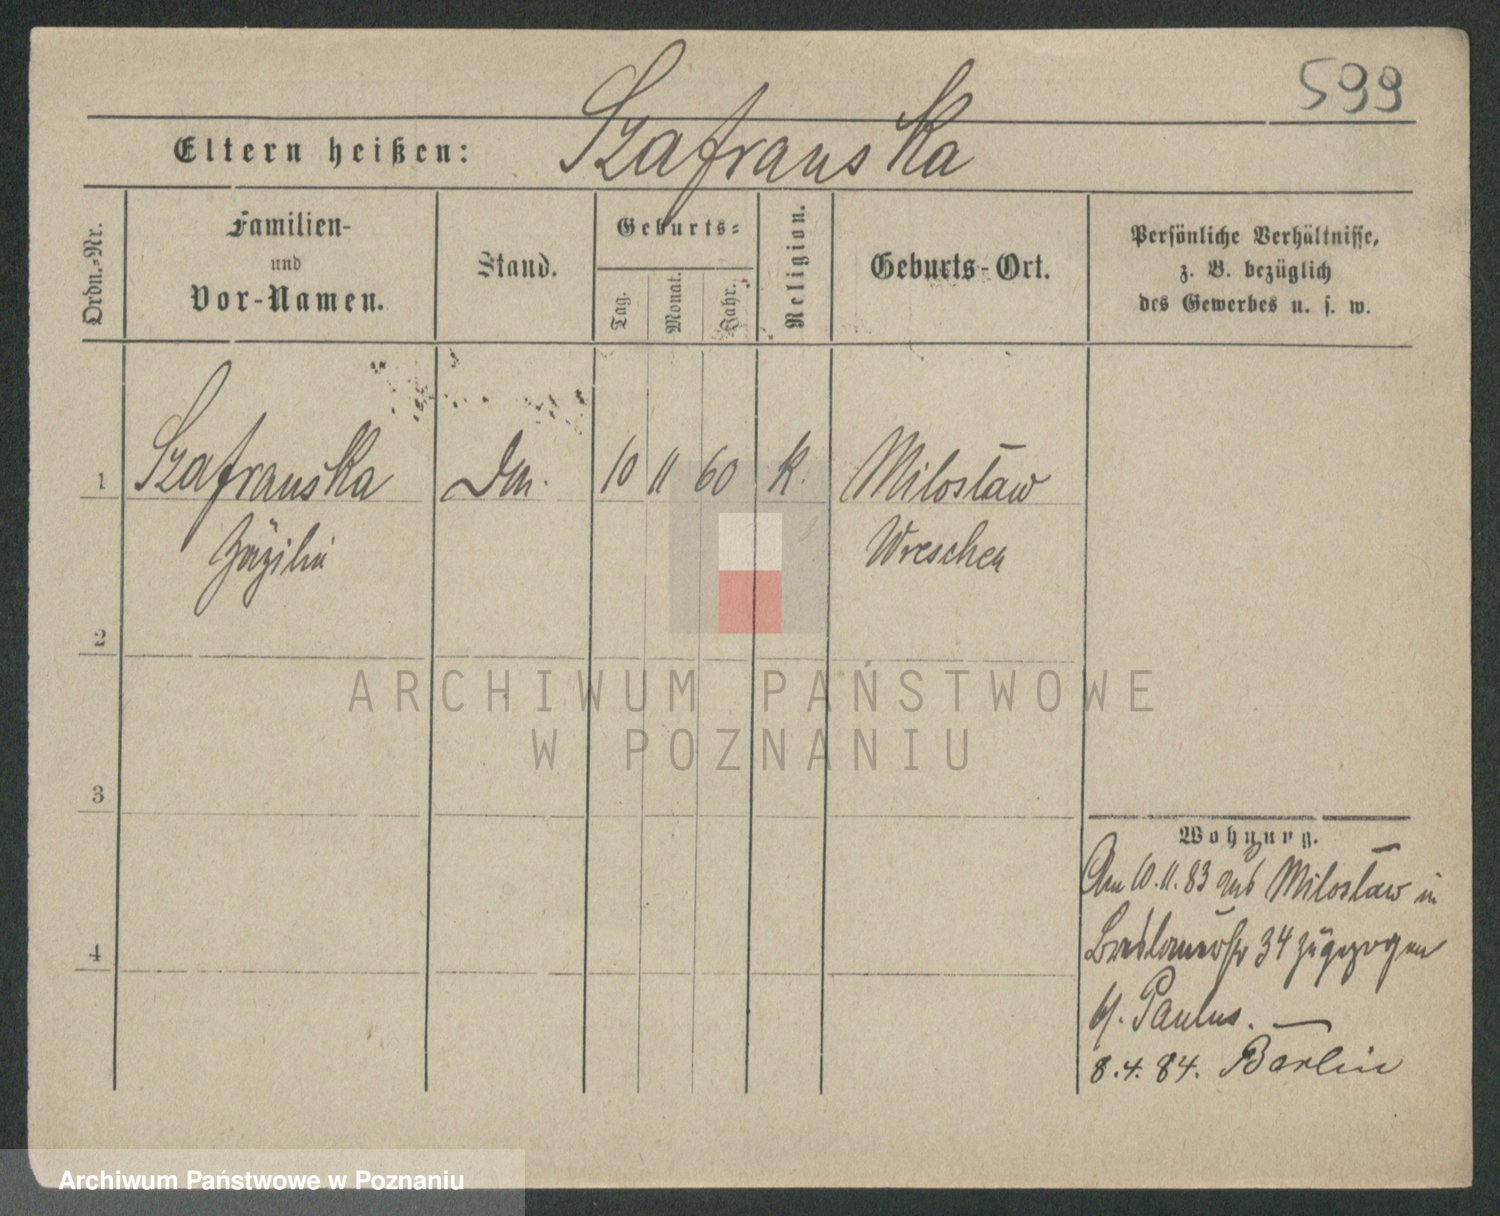 599
Eltern heißen: Szafranska
Ordn.-Nr.
Familien-
und
Vor-Namen.
Stand.
Geburts-
Tag.
Monat.
Jahr.
Religion.
Geburts-Ort.
Persönliche Verhältnisse,
z. B. bezüglich
des Gewerbes u. s. w.
1 Szafranska 10 11 60 K. Miloslaw
Wreschen
2
3
4
Wohnung.
Am 10.11.83 aus Miloslaw in
Breslauerstr 34 zugezogen
b/. Paulus.
8.4.84. Berlin
ARCHIWUM PAŃSTWOWE
W POZNANIU
Archiwum Państwowe w Poznaniu